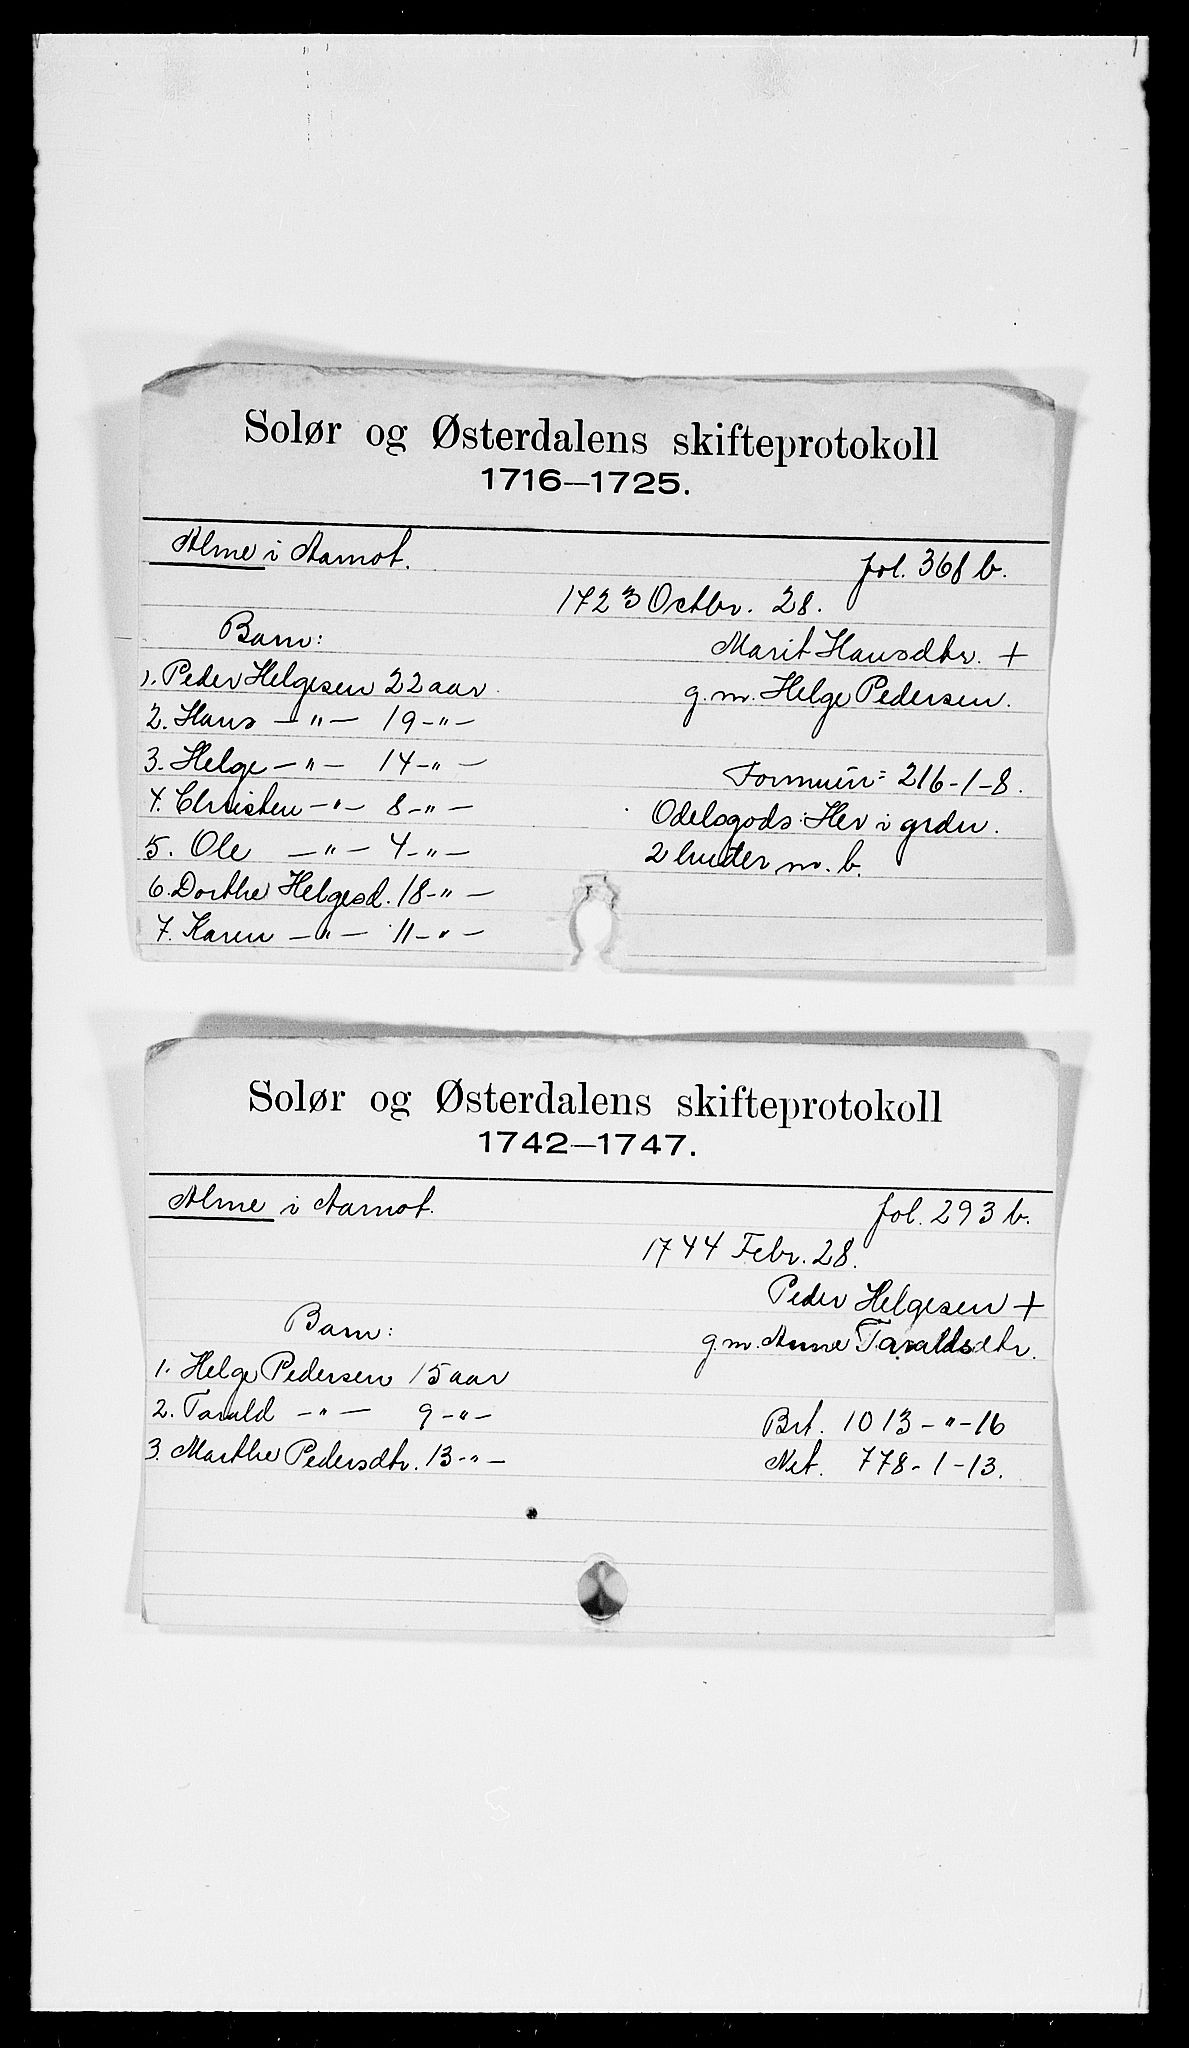 Solør og Østerdalens skifteprotokoll
1716—1725.
Alme i Aamot.
fol. 368 b.
1723 Octbr. 28.
Barn:
Marit Hansdtr. +
1. Peder Helgesen 22 aar.
g. m. Helge Pedersen.
2. Hans —"— 19-"-
3. Helge —"— 14-"-
Formuen: 216-1-8.
4. Christen —"— 8-"-
Odelsgods: Her i grden.
5. Ole —"— 4-"-
2 huder m. b.
6. Dorthe Helgesd. 18-"-
7. Karen —"— 11-"-
Solør og Østerdalens skifteprotokoll
1742—1747.
Alme i Aamot.
fol. 293 b.
1744 Febr. 28.
Peder Helgesen +
Barn:
g. m. Anne Taraldsdtr.
1. Helge Pedersen 15 aar
2. Tarald —"— 9-"-
Brt. 1013-"-16
3. Marthe Pedersdtr. 13-"-
Net. 778-1-13.